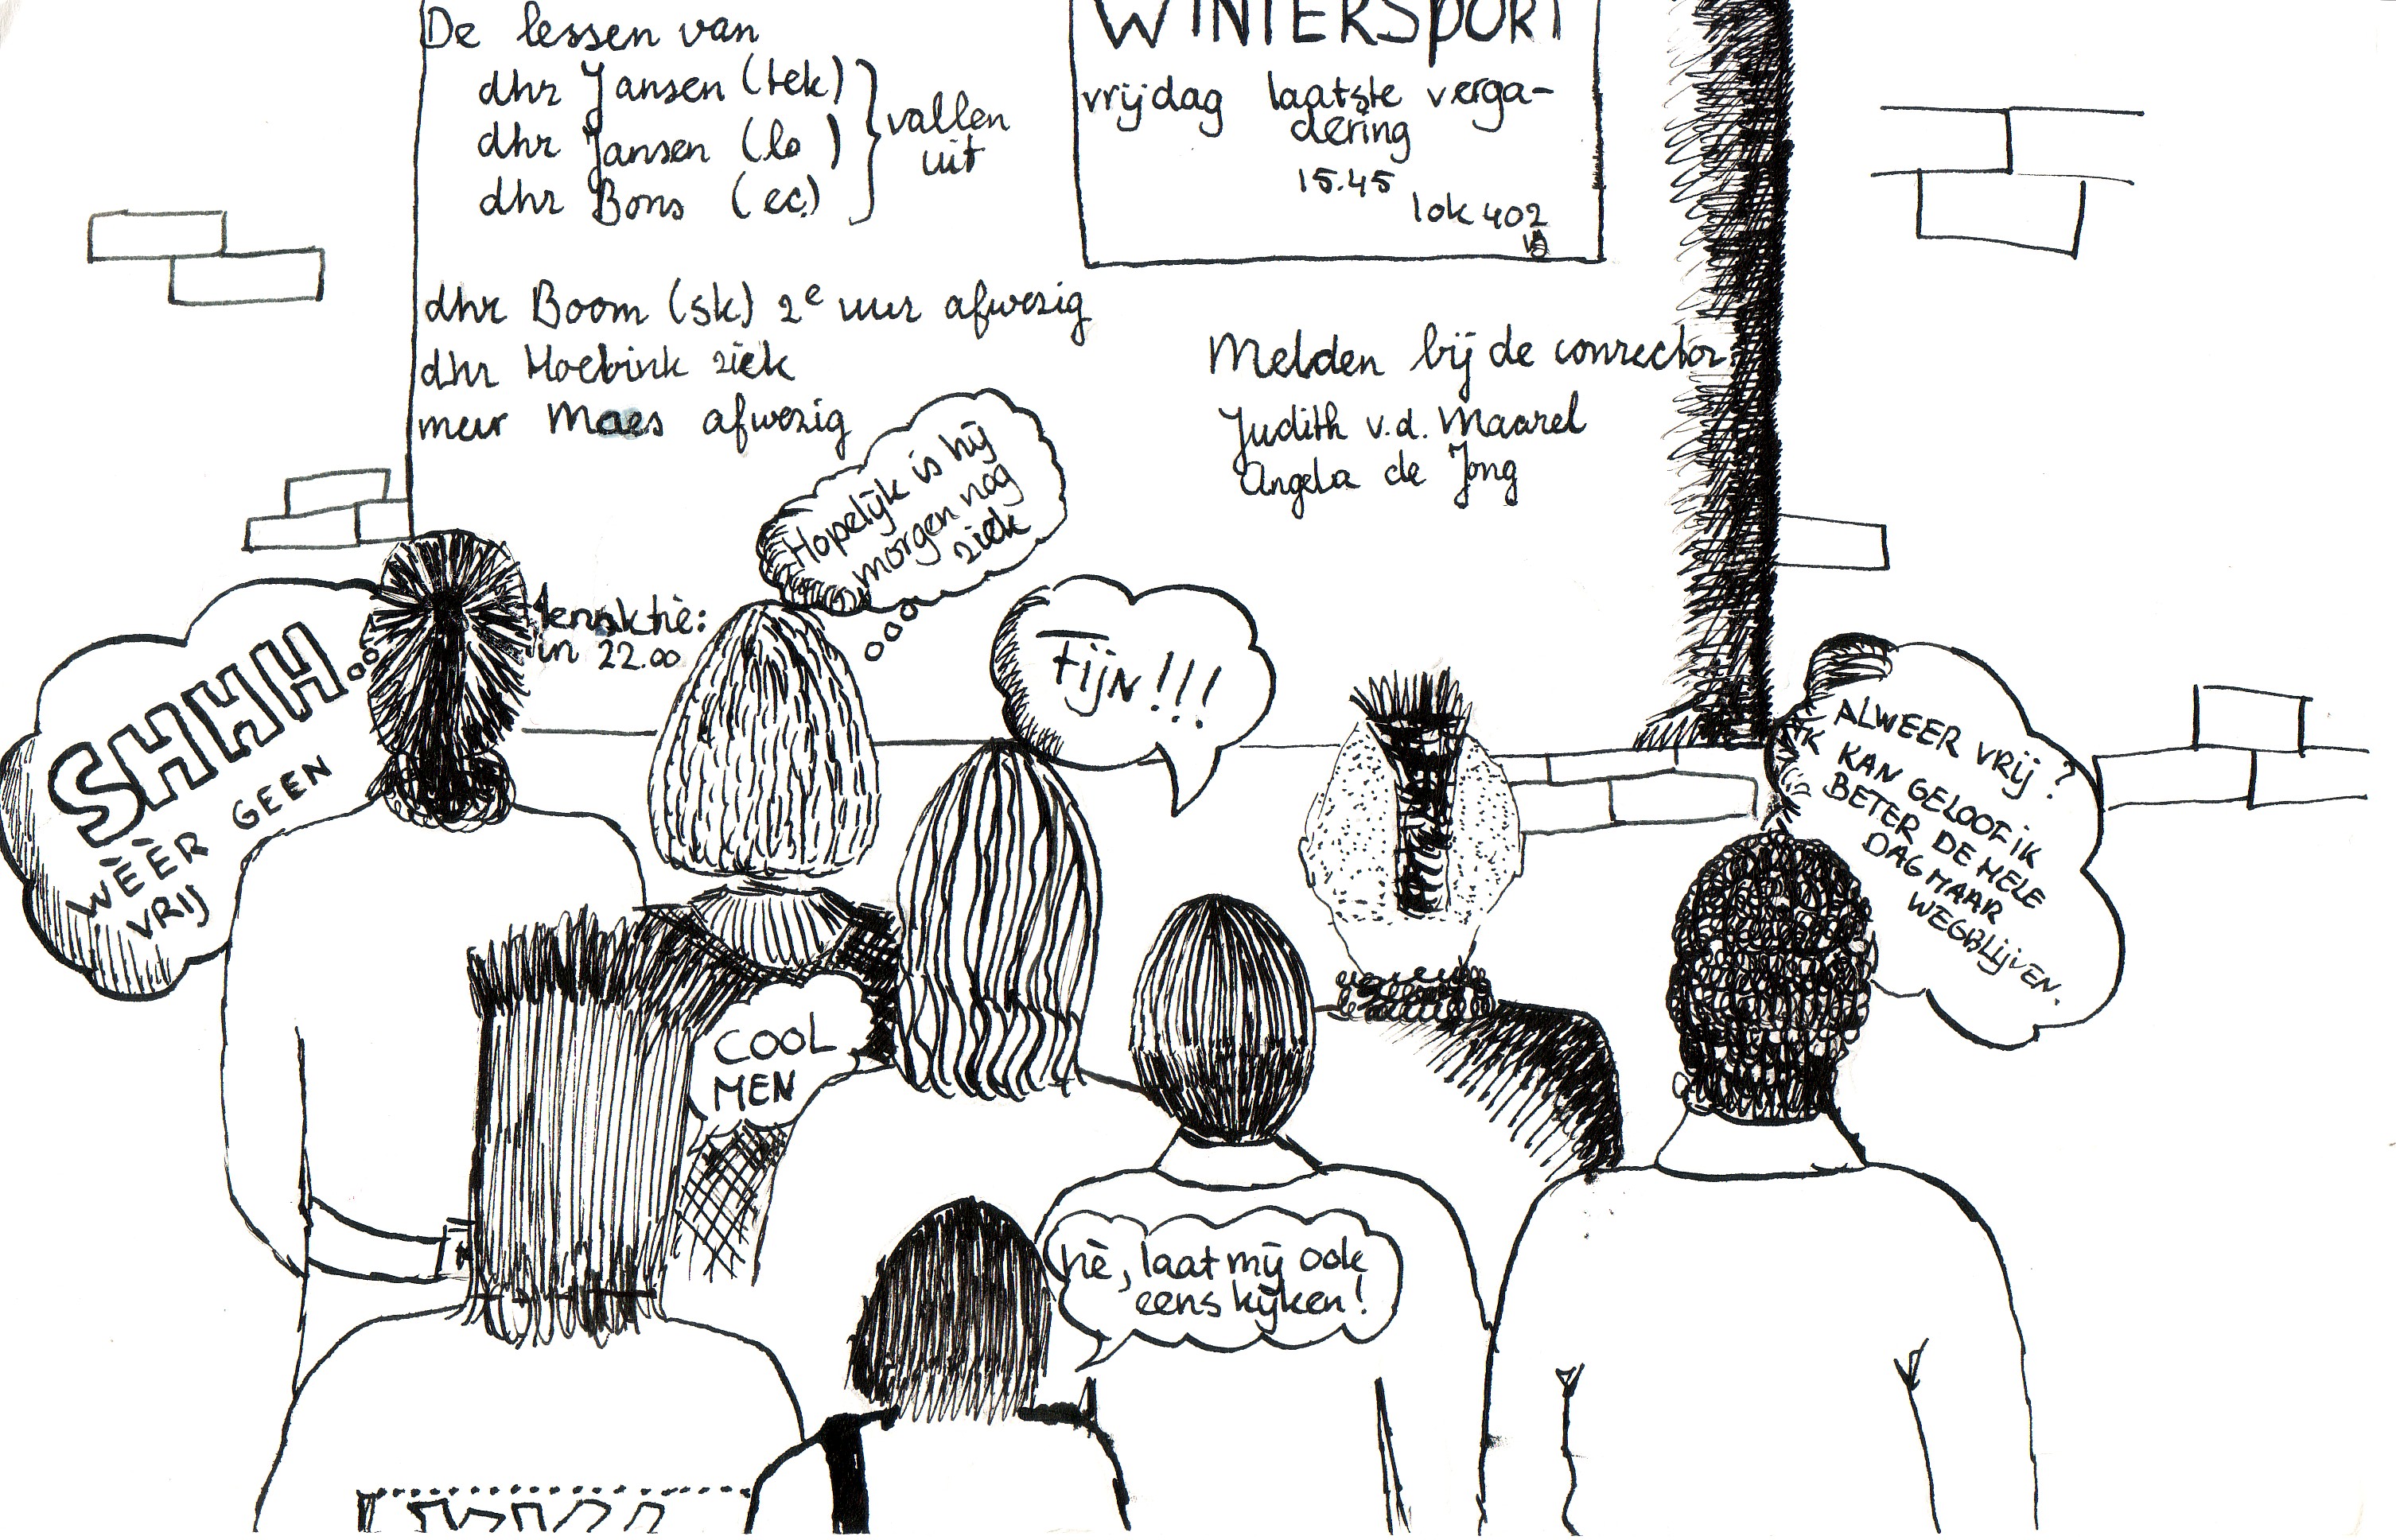 De lessen van
dhr Jansen (tek)
dhr Jansen (lo)
dhr Bons (ec)
vallen
uit
dhr Boom (sk) 2e uur afwezig
dhr Hoebink ziek
meur Maes afwezig
in 22.00
WINTERSPORT
vrijdag laatste verga-
dering
15.45
lok 402
Melden bij de conrector
Judith v.d. Maarel
Angela de Jong
Hopelijk is hij
morgen nog
ziek
SHHH..
WÈÈR GEEN
VRIJ
FIJN!!!
ALWEER VRIJ?
IK KAN GELOOF IK
BETER DE HELE
DAG MAAR
WEGBLIJVEN.
COOL
MEN
hè, laat mij ook
eens kijken!